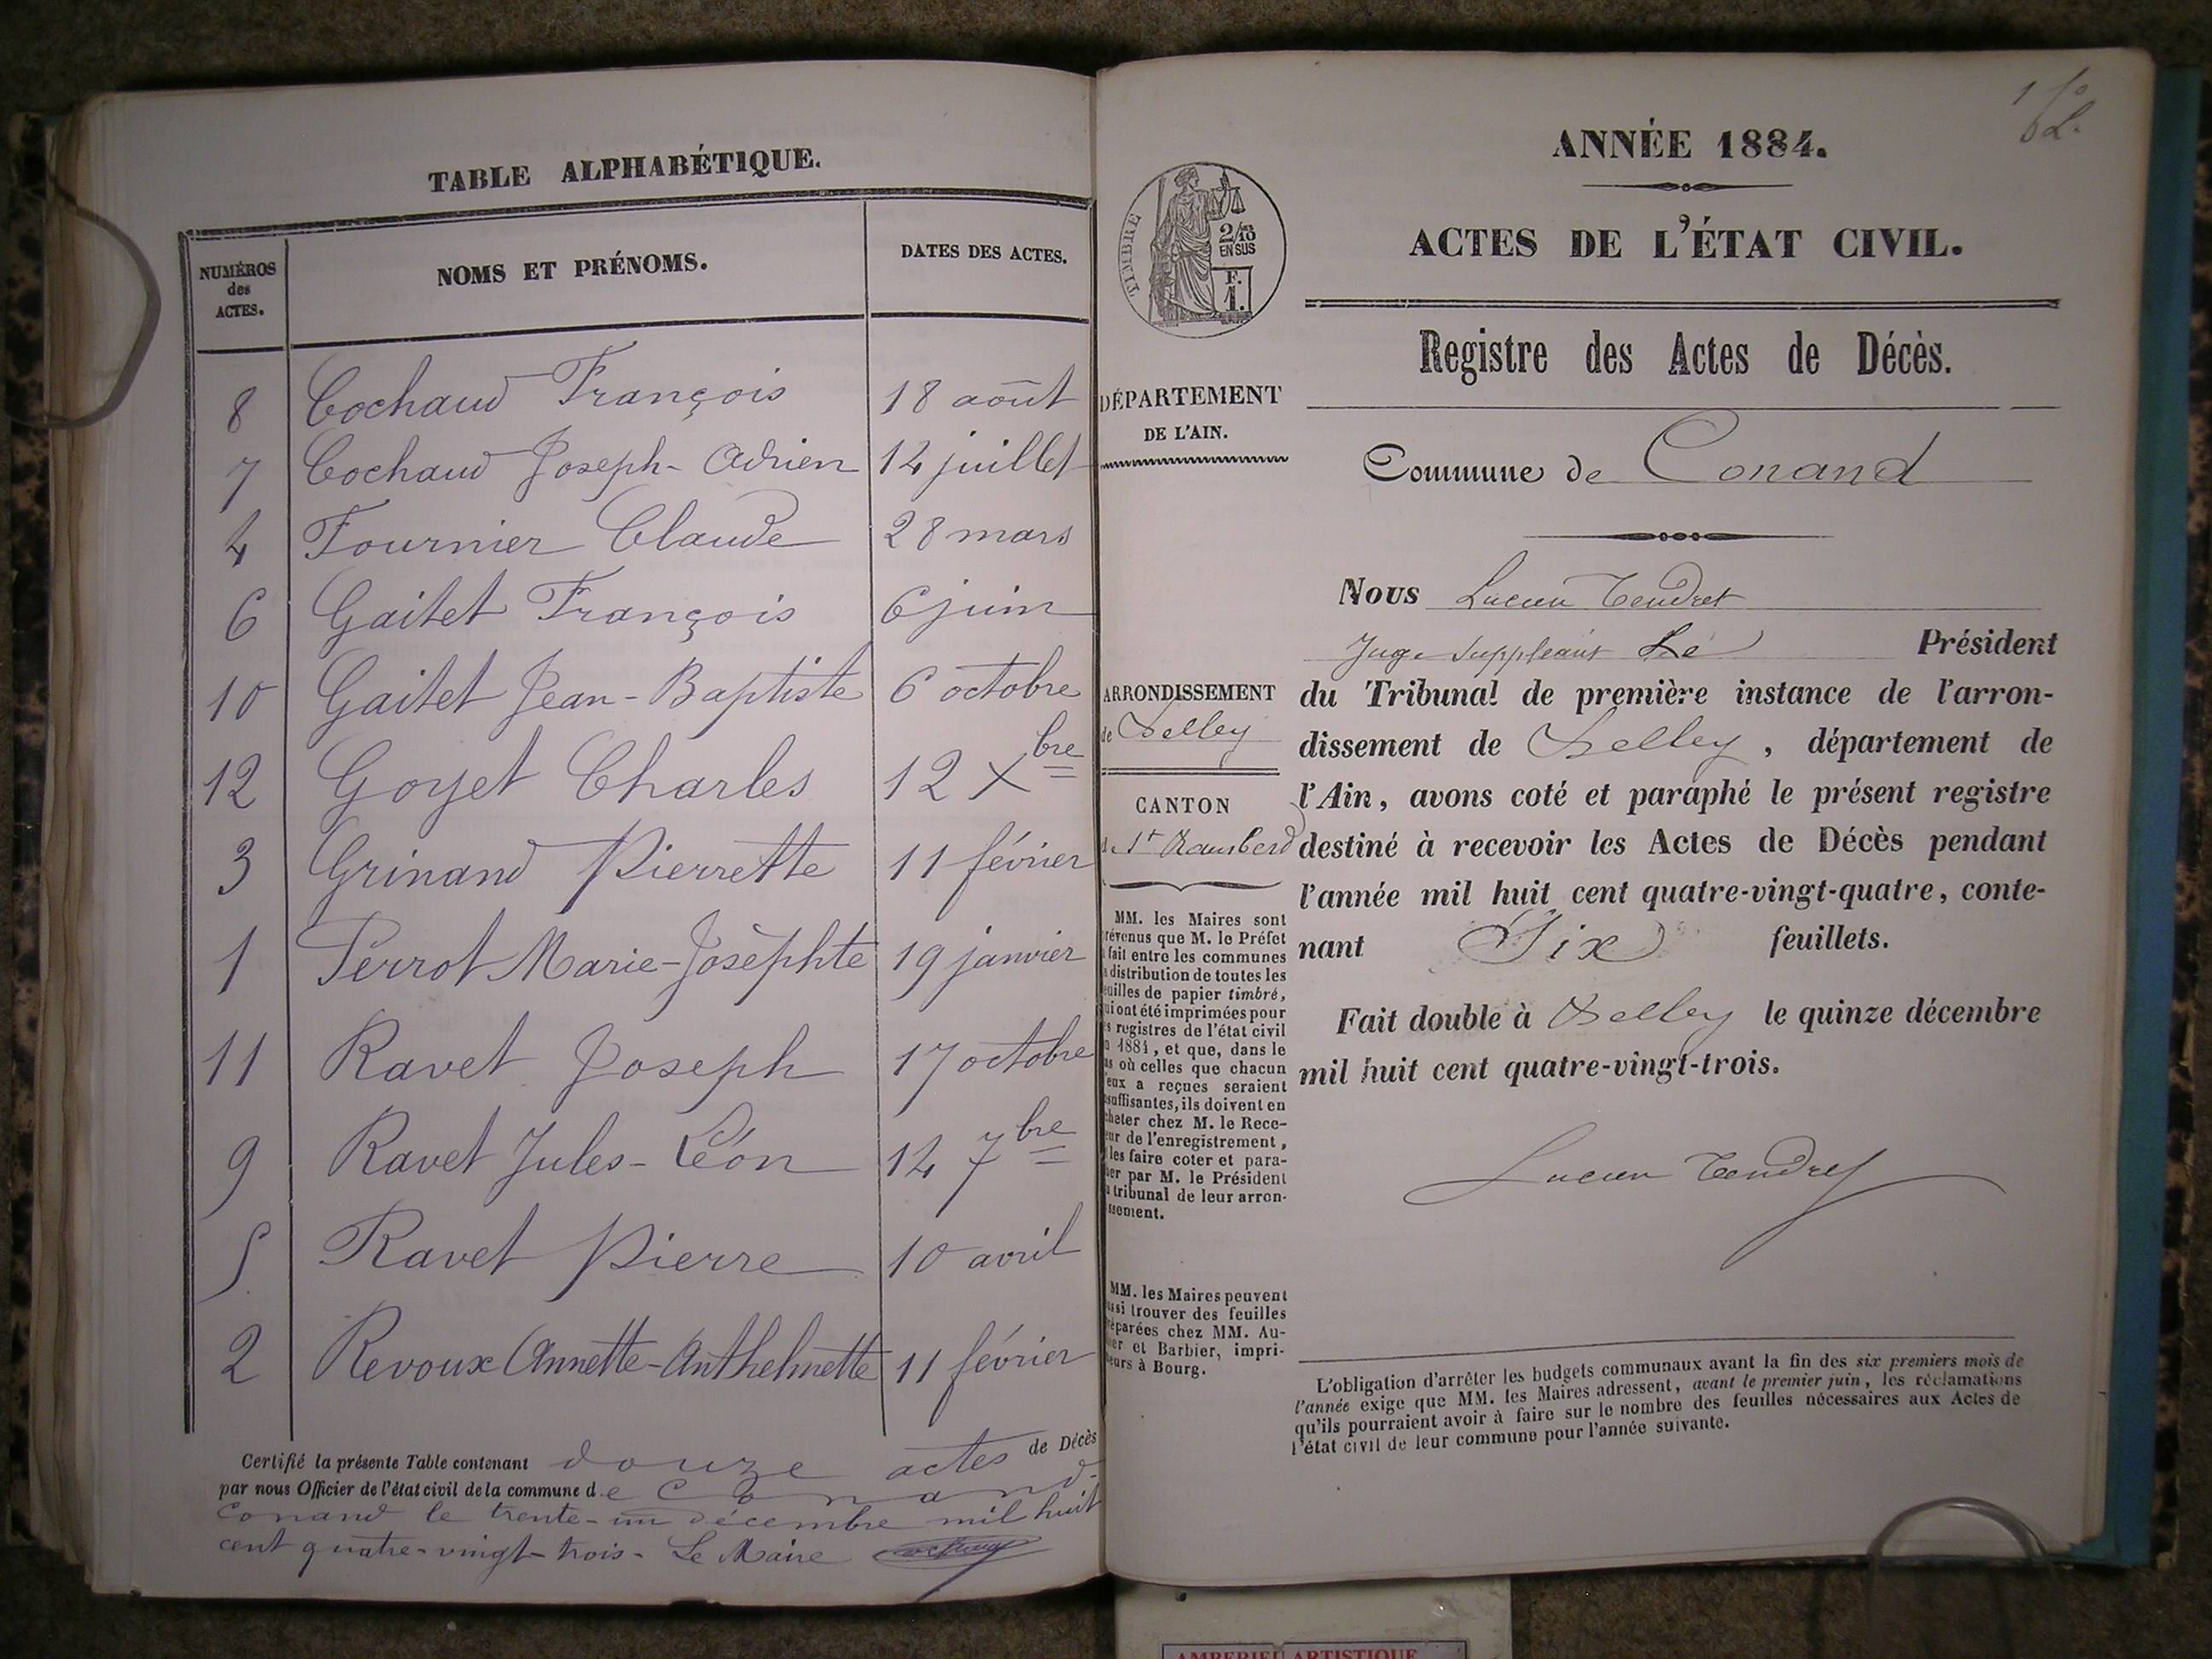 TABLE ALPHABÉTIQUE.
NUMÉROS des ACTES.
NOMS ET PRÉNOMS.
DATES DES ACTES.
8 Cochaud François 18 août
7 Cochaud Joseph-Adrien 12 juillet
4 Fournier Claude 28 mars
6 Gaitet François 6 juin
10 Gaitet Jean-Baptiste 6 octobre
12 Goyet Charles 12 Xbre
3 Grinand Pierrette 11 février
1 Perrot Marie-Josèphte 19 janvier
11 Ravet Joseph 17 octobre
9 Ravet Jules-Léon 12 7bre
5 Ravet Pierre 10 avril
2 Revoux Annette-Anthelmette 11 février
Certifié la présente Table contenant douze actes de Décès
par nous Officier de l'état civil de la commune de Conand
Conand le trente-un décembre mil huit
cent quatre-vingt-trois. Le Maire
1 fo
L.
ANNÉE 1884.
ACTES DE L'ÉTAT CIVIL.
Registre des Actes de Décès.
Commune de Conand
Nous Lucien Tendret
Juge Suppléant Le Président
du Tribunal de première instance de l'arron-
dissement de Belley, département de
l'Ain, avons coté et paraphé le présent registre
destiné à recevoir les Actes de Décès pendant
l'année mil huit cent quatre-vingt-quatre, conte-
nant Six feuillets.
Fait double à Belley le quinze décembre
mil huit cent quatre-vingt-trois.
Lucien Tendret
L'obligation d'arrêter les budgets communaux avant la fin des six premiers mois de
l'année exige que MM. les Maires adressent, avant le premier juin, les réclamations
qu'ils pourraient avoir à faire sur le nombre des feuilles nécessaires aux Actes de
l'état civil de leur commune pour l'année suivante.
TIMBRE
2/10es
EN SUS
F.
1.
DÉPARTEMENT
DE L'AIN.
ARRONDISSEMENT
de Belley
CANTON
de St Rambert
MM. les Maires sont
révenus que M. le Préfet
fait entre les communes
a distribution de toutes les
euilles de papier timbré,
ui ont été imprimées pour
s registres de l'état civil
1884, et que, dans le
as où celles que chacun
eux a reçues seraient
suffisantes, ils doivent en
cheter chez M. le Rece-
eur de l'enregistrement,
les faire coter et para-
her par M. le Président
u tribunal de leur arron-
ssement.
MM. les Maires peuvent
ussi trouver des feuilles
réparées chez MM. Au-
er et Barbier, impri-
eurs à Bourg.
AMBERIEU ARTISTIQUE